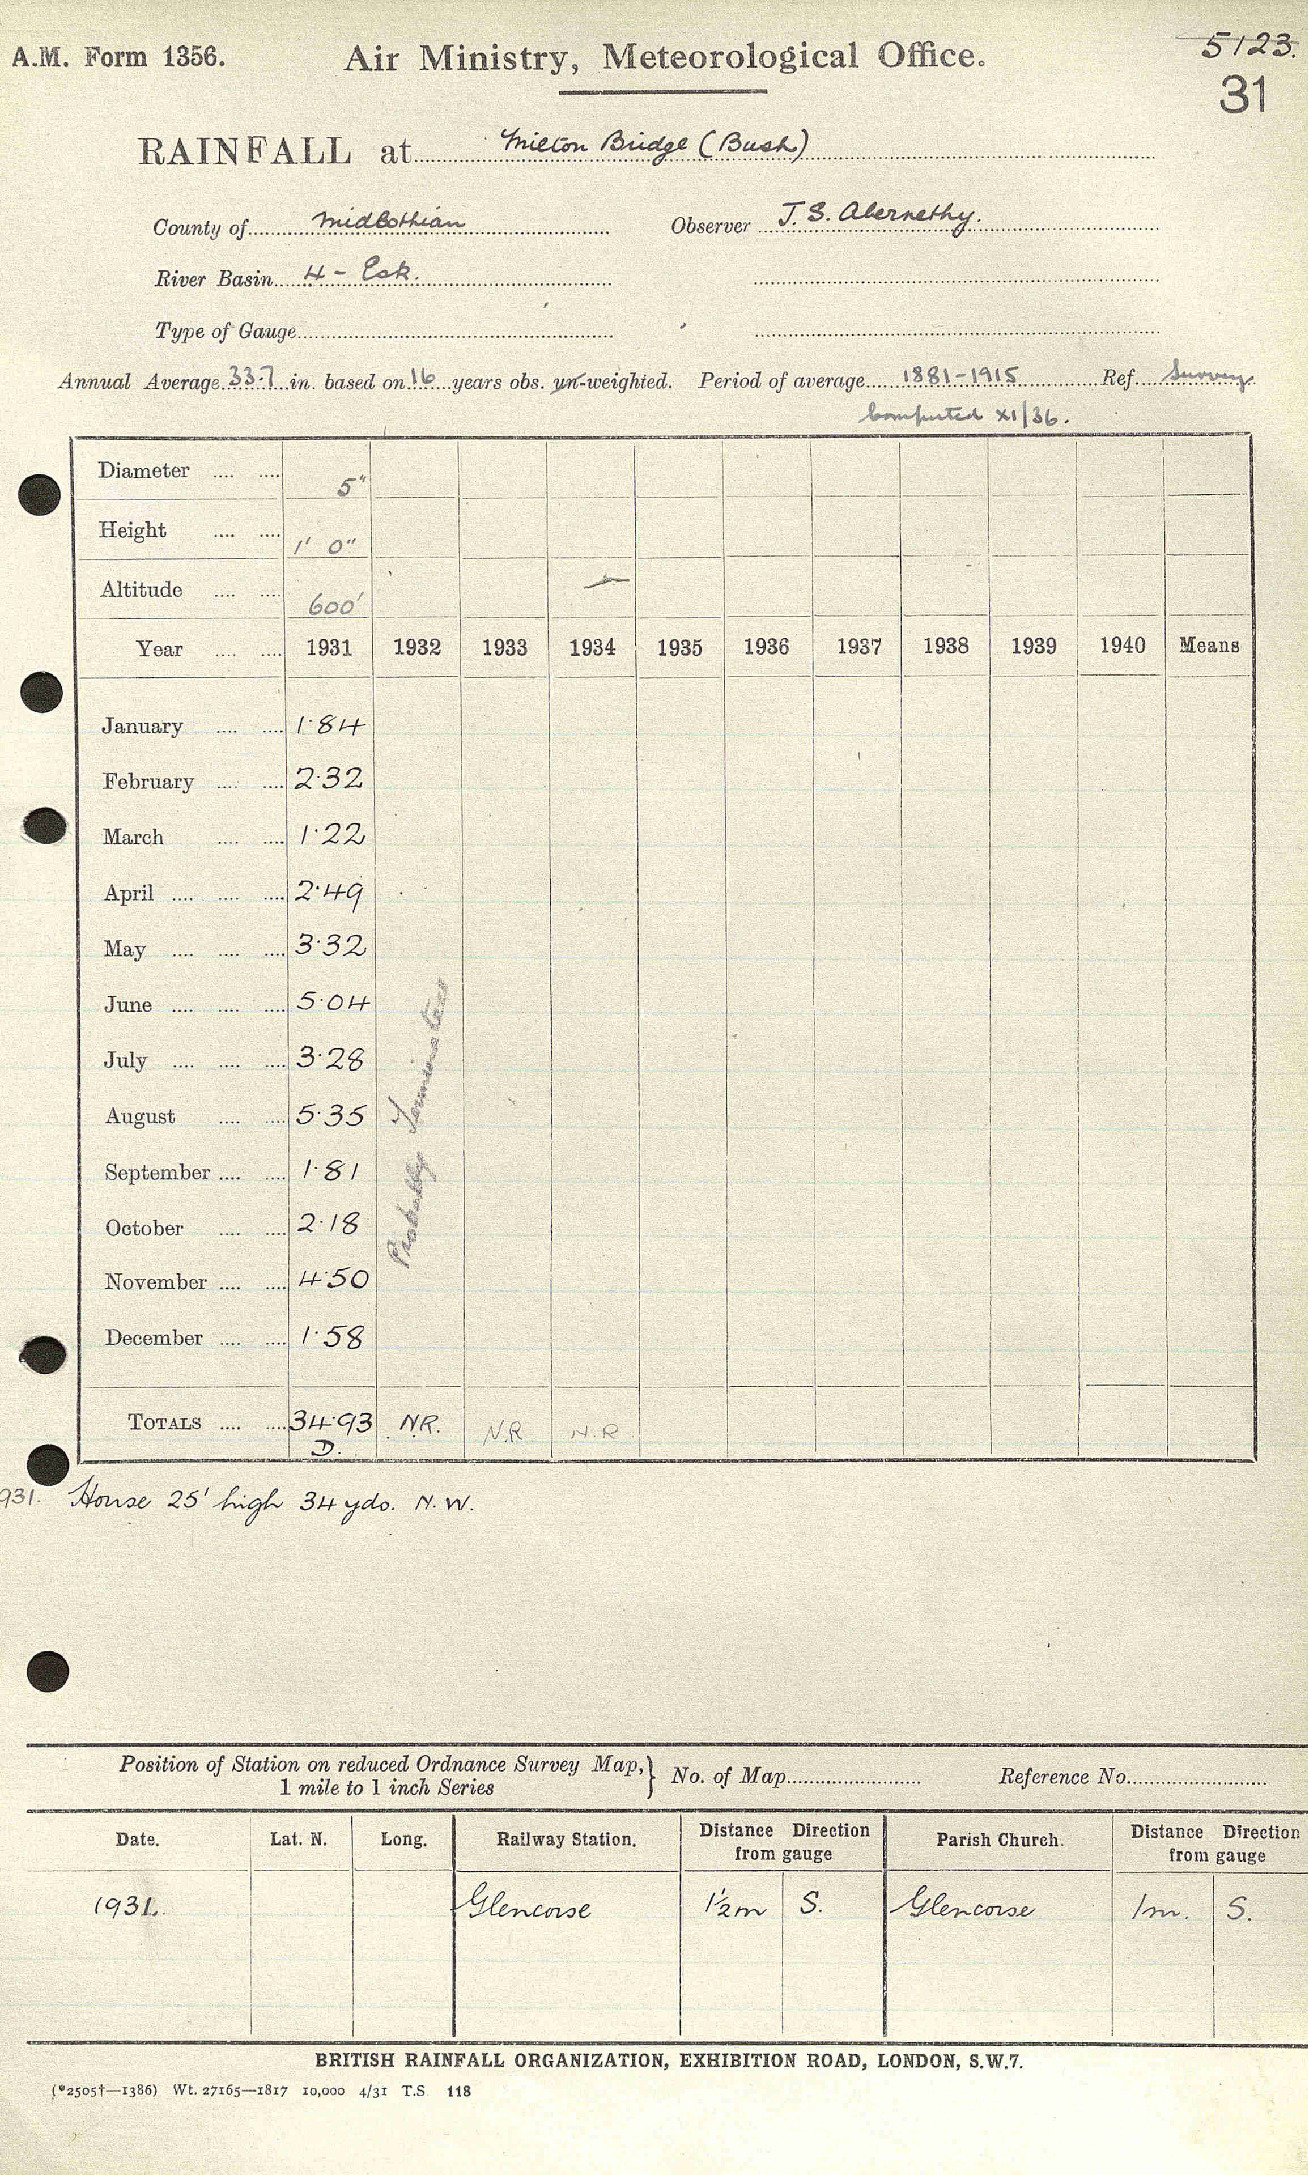 A.M. Form 1356. Air Ministry, Meteorological Office. 5123.
31
RAINFALL at Milton Bridge (Bush)
County of Midlothian Observer J. S. Abernethy.
River Basin 4 - Esk.
Type of Gauge
Annual Average 33.7 in. based on 16 years obs. un-weighted. Period of average 1881-1915 Ref. Survey
Computed XI/36.
Diameter 5"
Height 1' 0"
Altitude 600'
Year 1931 1932 1933 1934 1935 1936 1937 1938 1939 1940 Means
January 1.84
February 2.32
March 1.22
April 2.49
May 3.32
June 5.04
July 3.28
August 5.35
September 1.81
October 2.18
November 4.50
December 1.58
Probably Terminated
TOTALS 34.93 N.R. N.R. N.R.
D.
931. House 25' high 34 yds. N.W.
Position of Station on reduced Ordnance Survey Map, } No. of Map Reference No.
1 mile to 1 inch Series
Date. Lat. N. Long. Railway Station. Distance Direction from gauge Parish Church. Distance Direction from gauge
1931. Glencorse 1½m S. Glencorse 1m. S.
BRITISH RAINFALL ORGANIZATION, EXHIBITION ROAD, LONDON, S.W.7.
(*2505†—1386) Wt. 27165—1817 10,000 4/31 T.S. 118